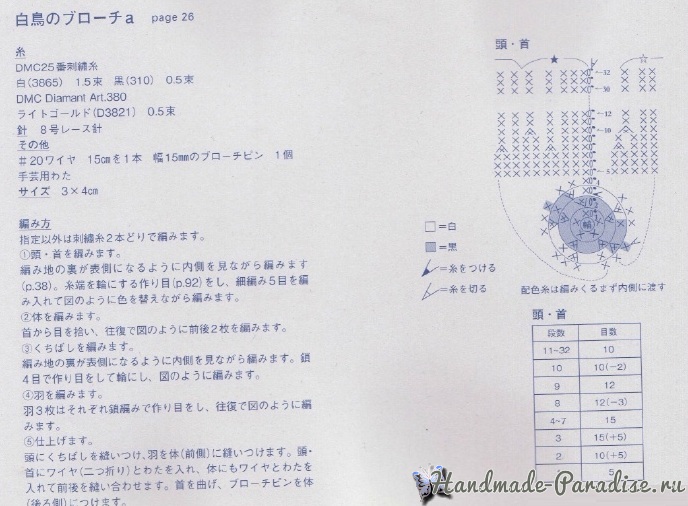 白鳥のブローチa page 26
糸
DMC25番刺繍糸
白(3865) 1.5束 黒(310) 0.5束
DMC Diamant Art.380
ライトゴールド(D3821) 0.5束
針 8号レース針
その他
#20ワイヤ 15cmを1本 幅15mmのブローチピン 1個
手芸用わた
サイズ 3×4cm
編み方
指定以外は刺繍糸2本どりで編みます。
①頭・首を編みます。
編み地の裏が表側になるように内側を見ながら編みます
(p.38)。糸端を輪にする作り目(p.92)をし、細編み5目を編
み入れて図のように色を替えながら編みます。
②体を編みます。
首から目を拾い、往復で図のように前後2枚を編みます。
③くちばしを編みます。
編み地の裏が表側になるように内側を見ながら編みます。鎖
4目で作り目をして輪にし、図のように編みます。
④羽を編みます。
羽3枚はそれぞれ鎖編みで作り目をし、往復で図のように編
みます。
⑤仕上げます。
頭にくちばしを縫いつけ、羽を体(前側)に縫いつけます。頭・
首にワイヤ(二つ折り)とわたを入れ、体にもワイヤとわたを
入れて前後を縫い合わせます。首を曲げ、ブローチピンを体
(後ろ側)につけます。
頭・首
★ ☆
32
30
12
10
5
輪
□=白
■=黒
=糸をつける
=糸を切る
配色糸は編みくるまず内側に渡す
頭・首
段数 目数
11~32 10
10 10(-2)
9 12
8 12(-3)
4~7 15
3 15(+5)
2 10(+5)
5
Handmade-Paradise.ru